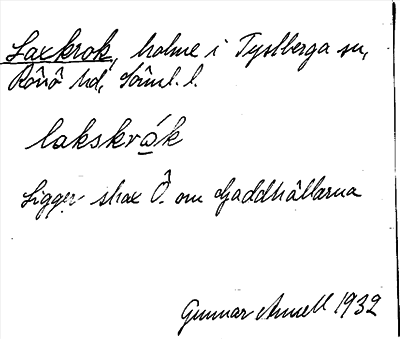 Laxkrok, holme i Tystberga sn,
Rönö hd, Söml. l.
lakskrǻk
Ligger strax Ö. om Gaddhällarna
Gunnar Annell 1932